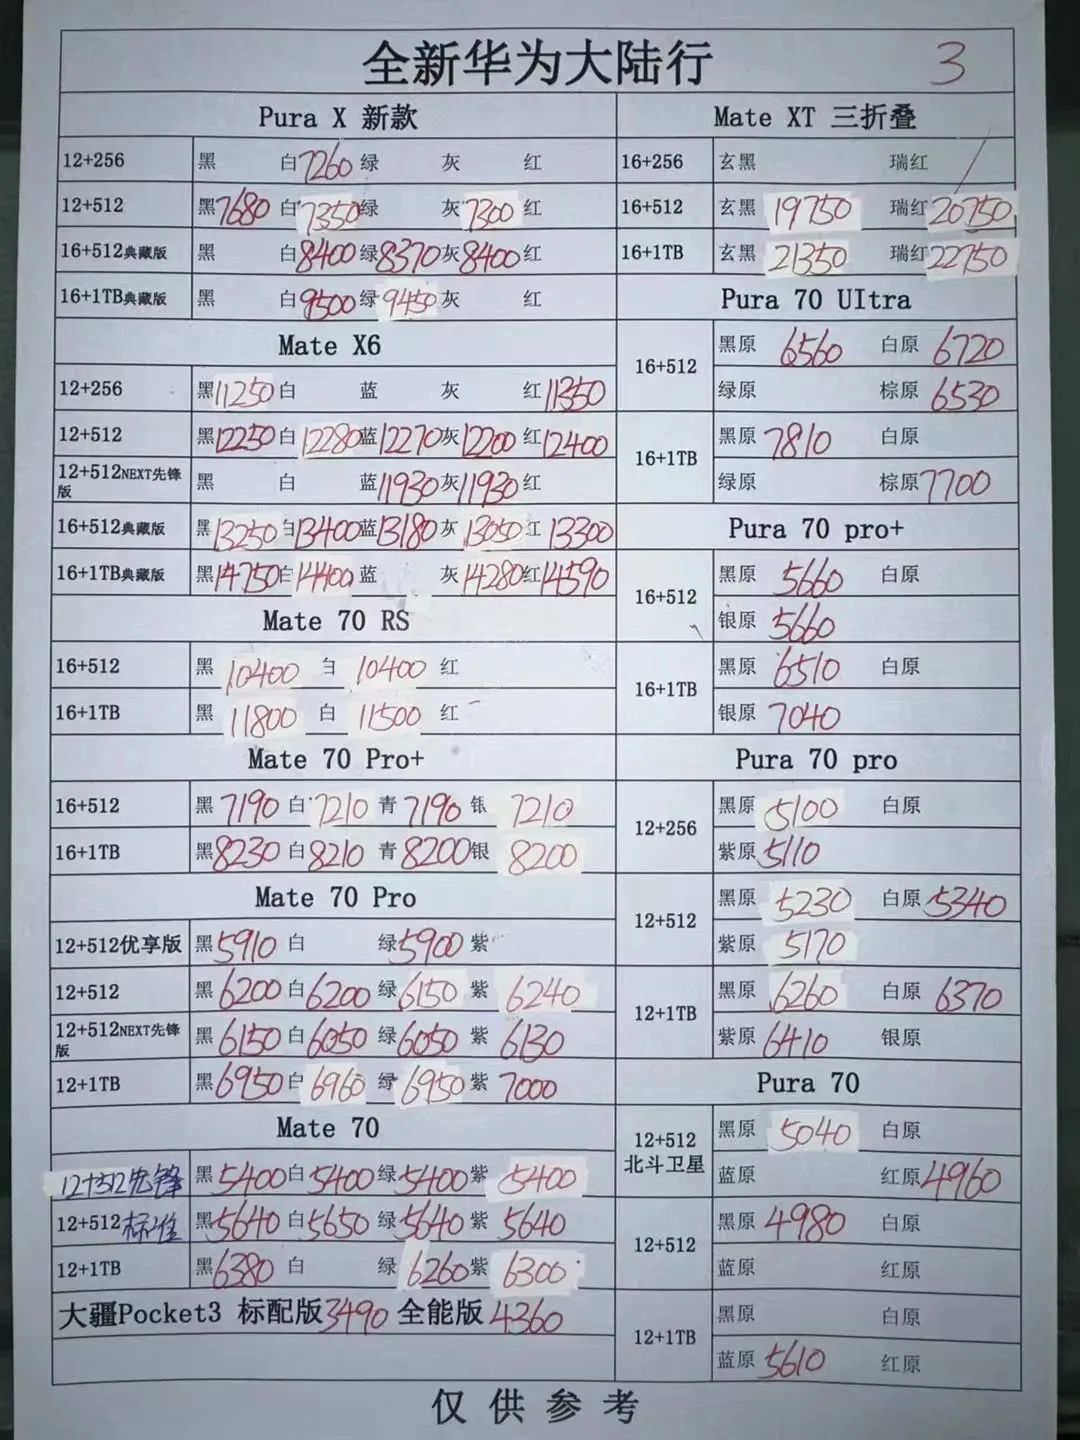 全新华为大陆行 3
Pura X 新款
12+256 黑 白7260 绿 灰 红
12+512 黑7680 白7350 绿 灰7300 红
16+512典藏版 黑 白8400 绿8370 灰8400 红
16+1TB典藏版 黑 白9500 绿9450 灰 红
Mate X6
12+256 黑11250 白 蓝 灰 红11350
12+512 黑12250 白12280 蓝12270 灰12200 红12400
12+512NEXT先锋版 黑 白 蓝11930 灰11930 红
16+512典藏版 黑13250 白13400 蓝13180 灰13050 红13300
16+1TB典藏版 黑14750 白14400 蓝 灰14280 红14590
Mate 70 RS
16+512 黑10400 白10400 红
16+1TB 黑11800 白11500 红
Mate 70 Pro+
16+512 黑7190 白7210 青7190 银7210
16+1TB 黑8230 白8210 青8200 银8200
Mate 70 Pro
12+512优享版 黑5910 白 绿5900 紫
12+512 黑6200 白6200 绿6150 紫6240
12+512NEXT先锋版 黑6150 白6050 绿6050 紫6130
12+1TB 黑6950 白6960 绿6950 紫7000
Mate 70
12+512先锋 黑5400 白5400 绿5400 紫5400
12+512标准 黑5640 白5650 绿5640 紫5640
12+1TB 黑6380 白 绿6260 紫6300
大疆Pocket3 标配版3490 全能版4360
Mate XT 三折叠
16+256 玄黑 瑞红
16+512 玄黑 19750 瑞红20750
16+1TB 玄黑 21350 瑞红22750
Pura 70 UItra
16+512 黑原 6560 白原 6720
绿原 棕原 6530
16+1TB 黑原 7810 白原
绿原 棕原7700
Pura 70 pro+
16+512 黑原 5660 白原
银原 5660
16+1TB 黑原 6510 白原
银原 7040
Pura 70 pro
12+256 黑原 5100 白原
紫原 5110
12+512 黑原 5230 白原5340
紫原 5170
12+1TB 黑原 6260 白原 6370
紫原 6410 银原
Pura 70
12+512北斗卫星 黑原 5040 白原
蓝原 红原4960
12+512 黑原 4980 白原
蓝原 红原
12+1TB 黑原 白原
蓝原 5610 红原
仅供参考